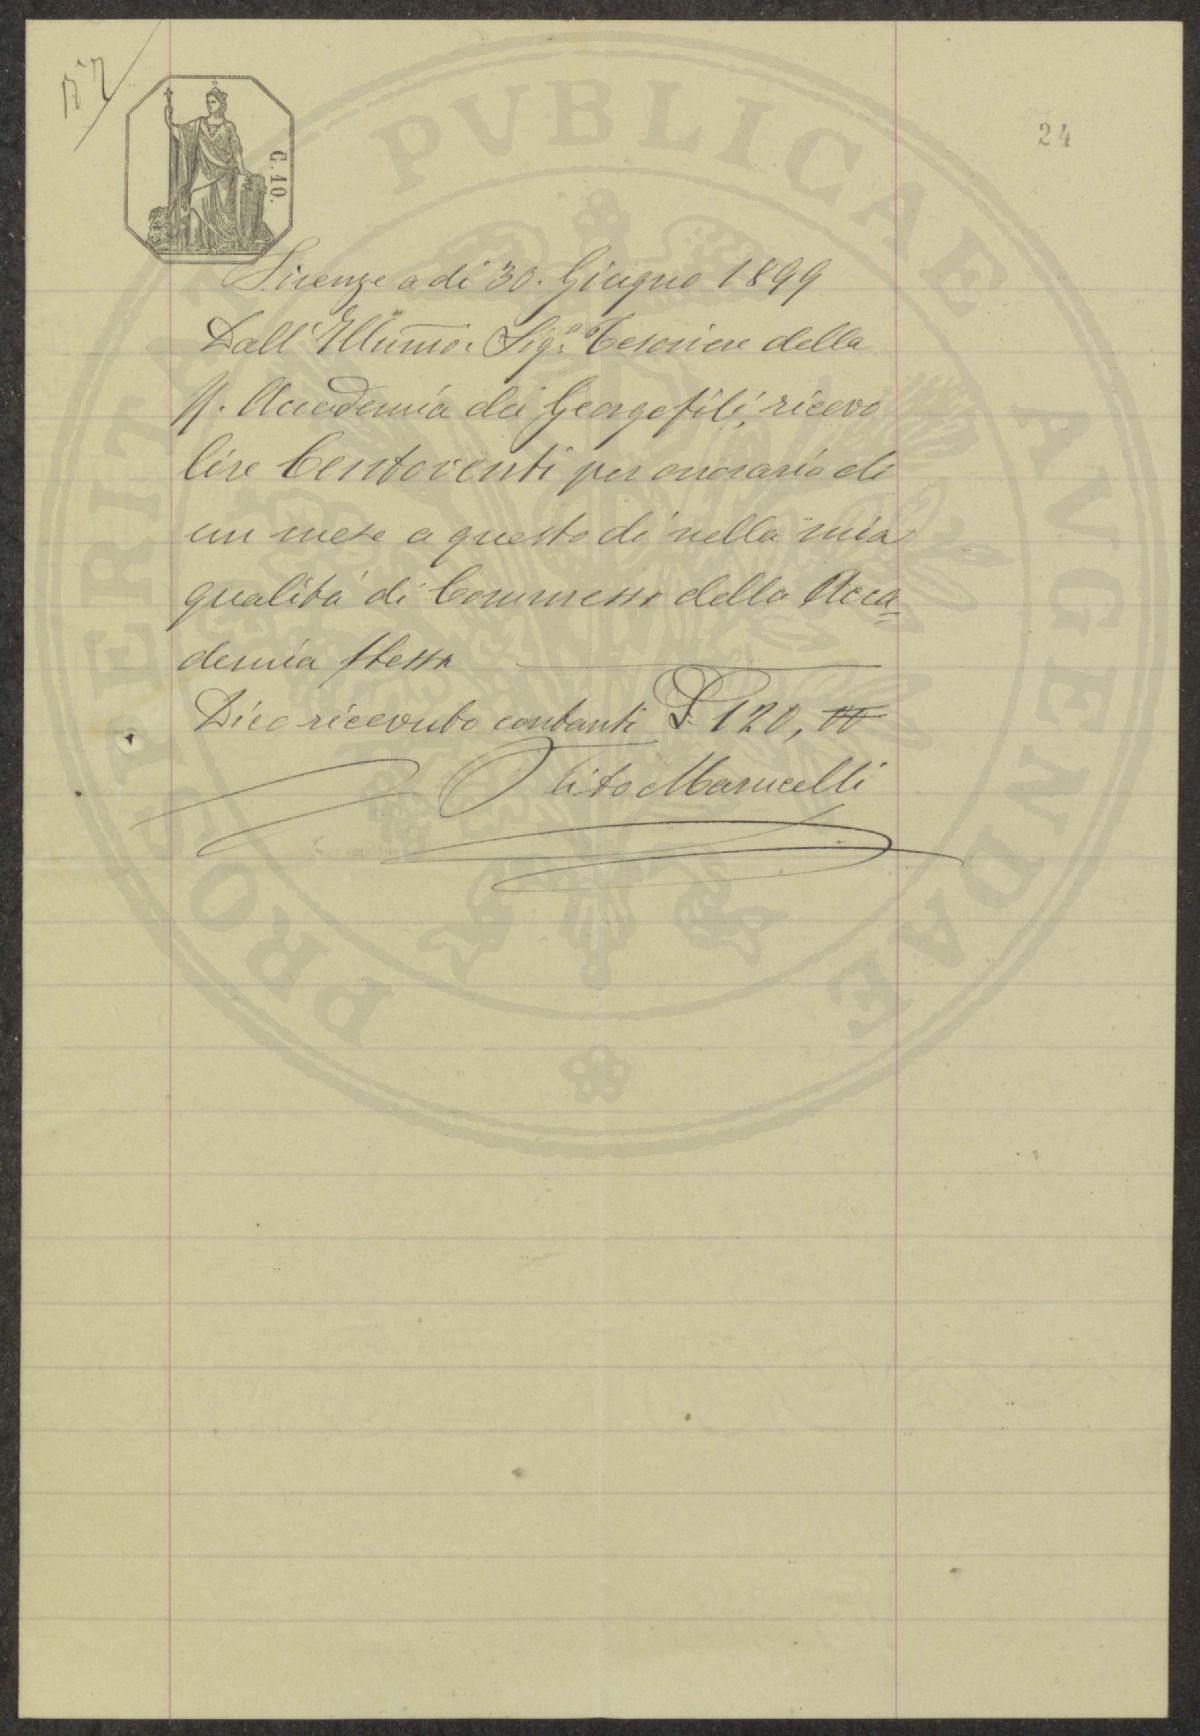 N° 2
C. 10.
24
Firenze a dì 30. Giugno 1899
Dall' Illumo. Sigr. Tesoriere della
R. Accademia dei Georgofili, ricevo
lire Centoventi per onorario di
un mese a questo dì nella mia
qualità di Commesso della Acca=
demia stessa
Dico ricevuto contanti £ 120, 00
Tito Marucelli
PROSPERITATI PVBLICAE AVGENDAE